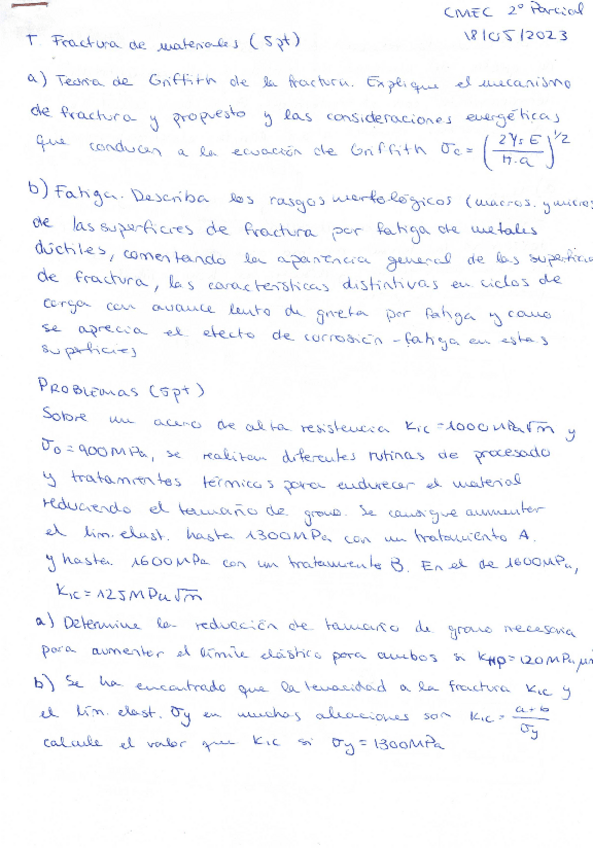 CMEC 2º Parcial
18/05/2023
T. Fractura de materiales (5pt)
a) Teoría de Griffith de la fractura. Explique el mecanismo
de fractura y propuesto y las consideraciones energéticas
que conducen a la ecuación de Griffith σc = (2γs E / π.a)^1/2
b) Fatiga. Describa los rasgos morfológicos (macros. y micros
de las superficies de fractura por fatiga de metales
dúctiles, comentando la apariencia general de las superficie
de fractura, las características distintivas en ciclos de
carga con avance lento de grieta por fatiga y como
se aprecia el efecto de corrosión-fatiga en estas
superficies
PROBLEMAS (5pt)
Sobre un acero de alta resistencia KIC = 1000 MPa√m y
σ0 = 900 MPa, se realizan diferentes rutinas de procesado
y tratamientos térmicos para endurecer el material
reduciendo el tamaño de grano. Se consigue aumentar
el lím. elast. hasta 1300MPa con un tratamiento A.
y hasta 1600MPa con un tratamiento B. En el de 1600MPa,
KIC = 125 MPa√m
a) Determine la reducción de tamaño de grano necesaria
para aumentar el límite elástico para ambos si KHP = 120 MPa
b) Se ha encontrado que la tenacidad a la fractura KIC y
el lím. elast. σy en muchas aleaciones son KIC = a+b / σy
calcule el valor que KIC si σy = 1300MPa